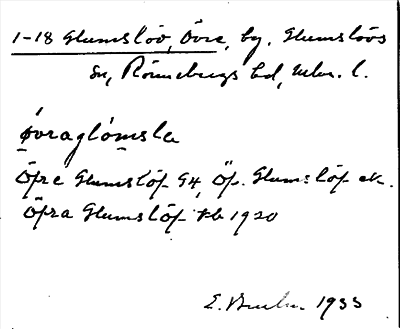 1-18 Glumslöv, Övre, by, Glumslövs
sn, Rönnebergs hd, Mlm. l.
óvraglòmsla
Öfre Glumslöf G4, Öf. Glumslöf ek.
Öfra Glumslöf kb 1920
E. 1933